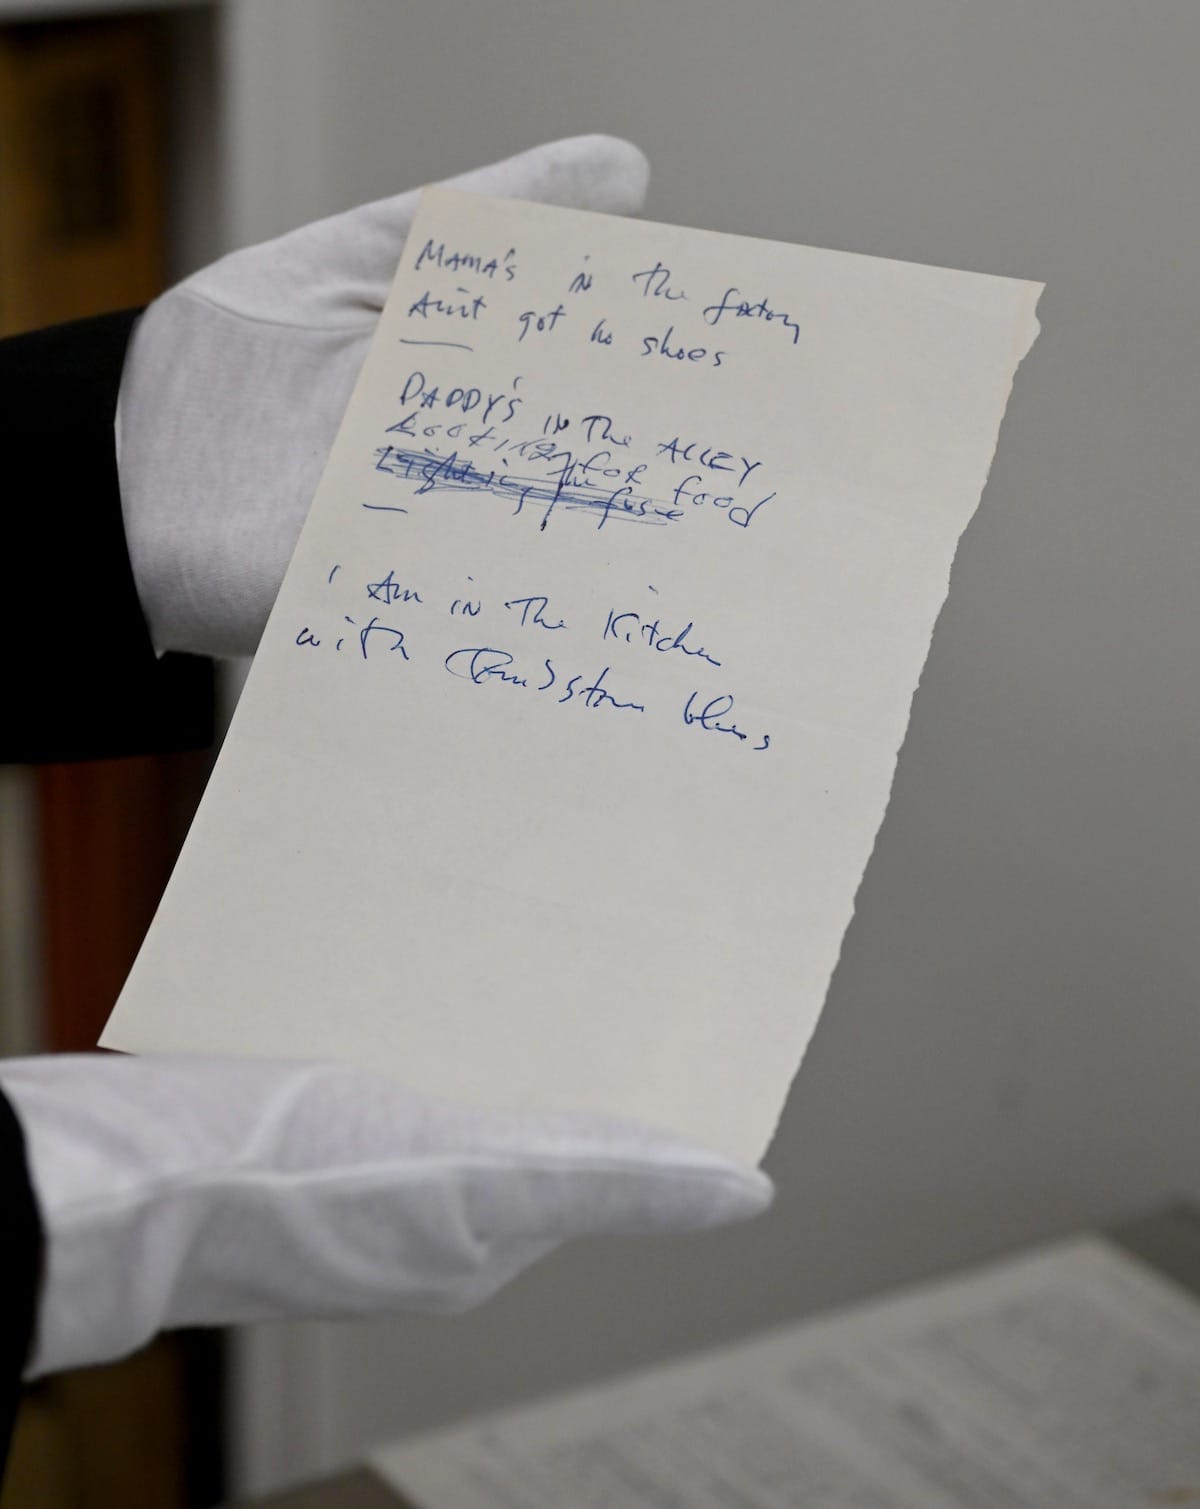 MAMA's in The factory
Ain't got no shoes
DADDY'S IN The ALLEY
LOOKING FOR food
Lighting the fuse
I Am in The Kitchen
with Tombstone blues